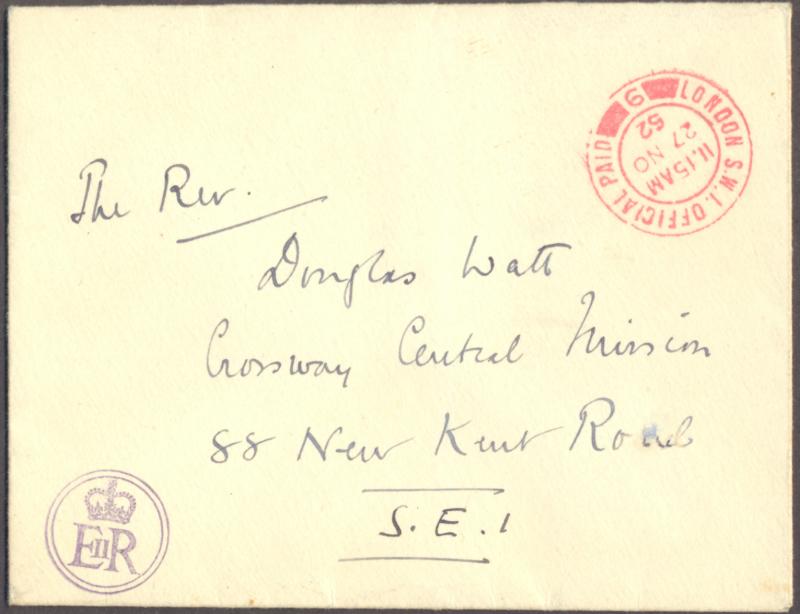 LONDON S.W.1. OFFICIAL PAID
6
11.15AM
27 NO
52
The Rev.
Douglas Watt
Crossway Central Mission
88 New Kent Road
S.E.1
EIIR